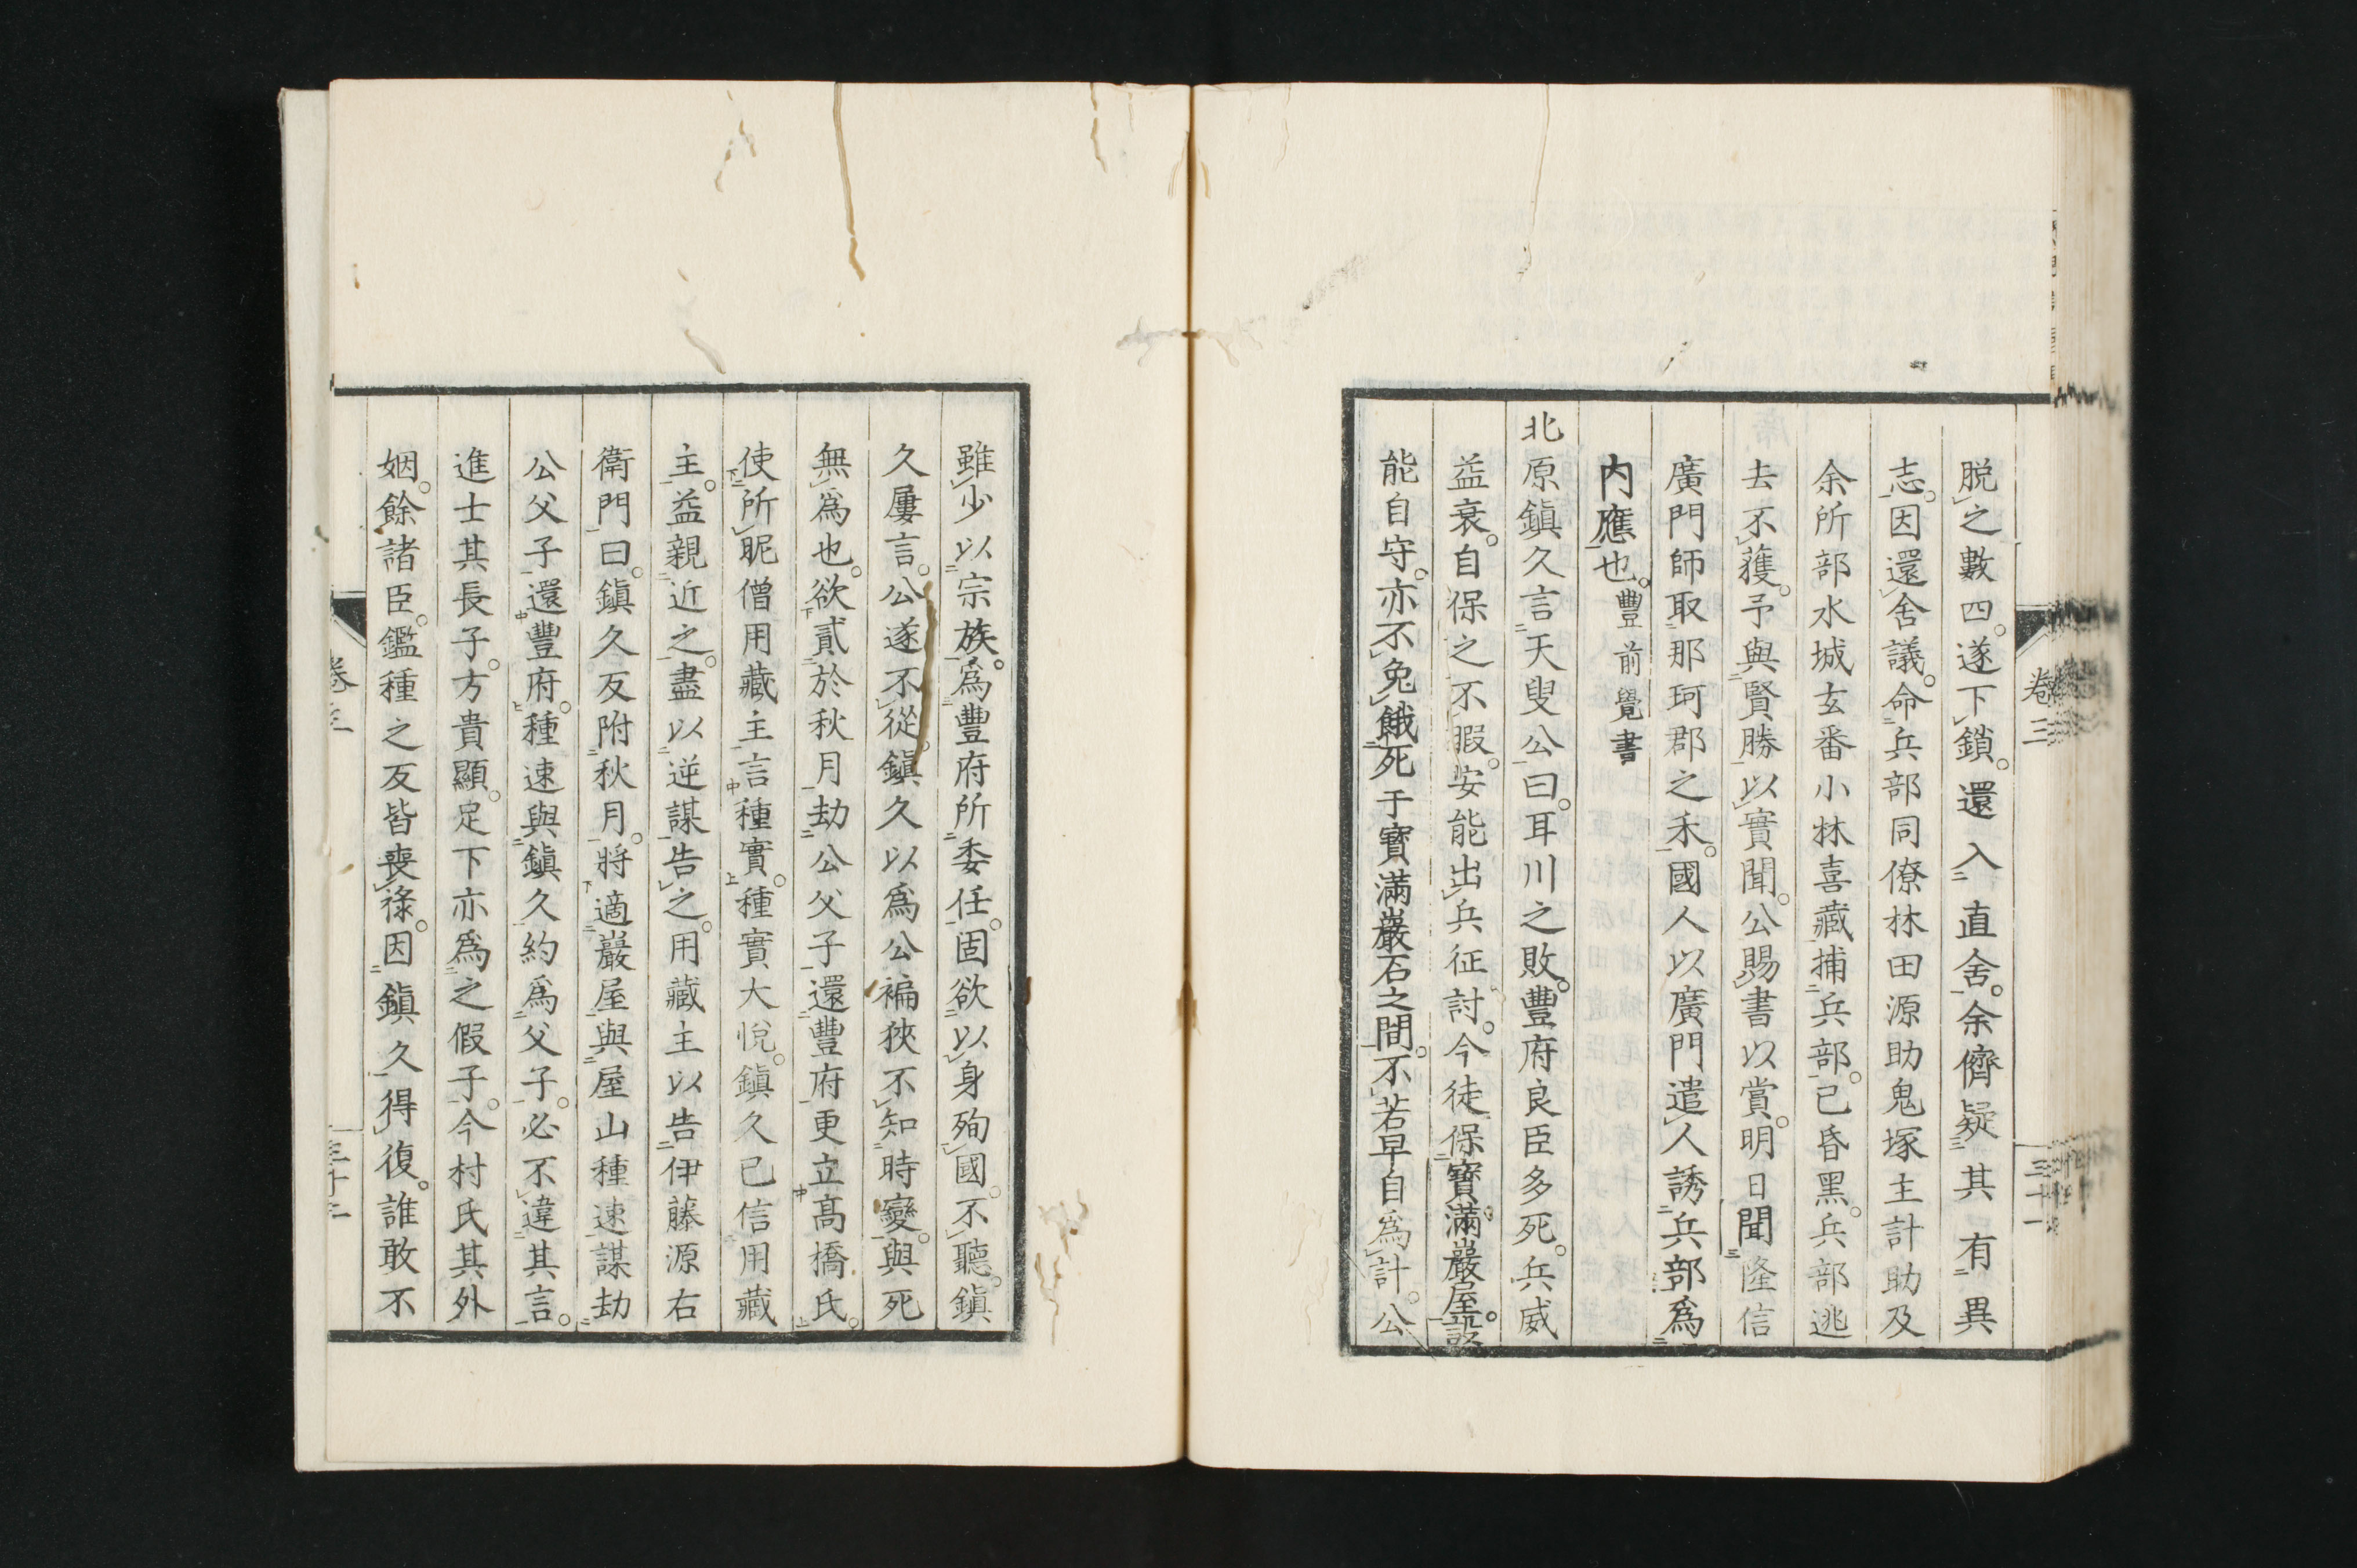 脱之數四。遂下鎖。還入直舍。余儕疑其有異
志。因還舍議。命兵部同僚林田源助鬼塚主計助及
余所部水城玄番小林喜藏捕兵部。已昏黑。兵部逃
去不獲。予與賢勝以實聞。公賜書以賞。明日聞隆信
廣門師取那珂郡之禾。國人以廣門遣人誘兵部爲
内應也。豐前覺書
北原鎭久言天叟公曰。耳川之敗。豐府良臣多死。兵威
益衰。自保之不暇。安能出兵征討。今徒保寶滿巖屋。
能自守。亦不免餓死于寶滿巖石之間。不若早自爲計。公
卷三
三十一
雖少以宗族。爲豐府所委任。固欲以身殉國。不聽。鎭
久屢言。公遂不從。鎭久以爲公褊狹不知時變。與死
無爲也。欲貳於秋月劫公父子還豐府更立高橋氏。
使所昵僧用藏主言種實。種實大悅。鎭久已信用藏
主。益親近之。盡以逆謀告之。用藏主以告伊藤源右
衛門曰。鎭久反附秋月。將適巖屋與屋山種速謀劫
公父子還豐府。種速與鎭久約爲父子。必不違其言。
進士其長子。方貴顯。足下亦爲之假子。今村氏其外
姻。餘諸臣。鑑種之反皆喪祿。因鎭久得復。誰敢不
卷三
三十二